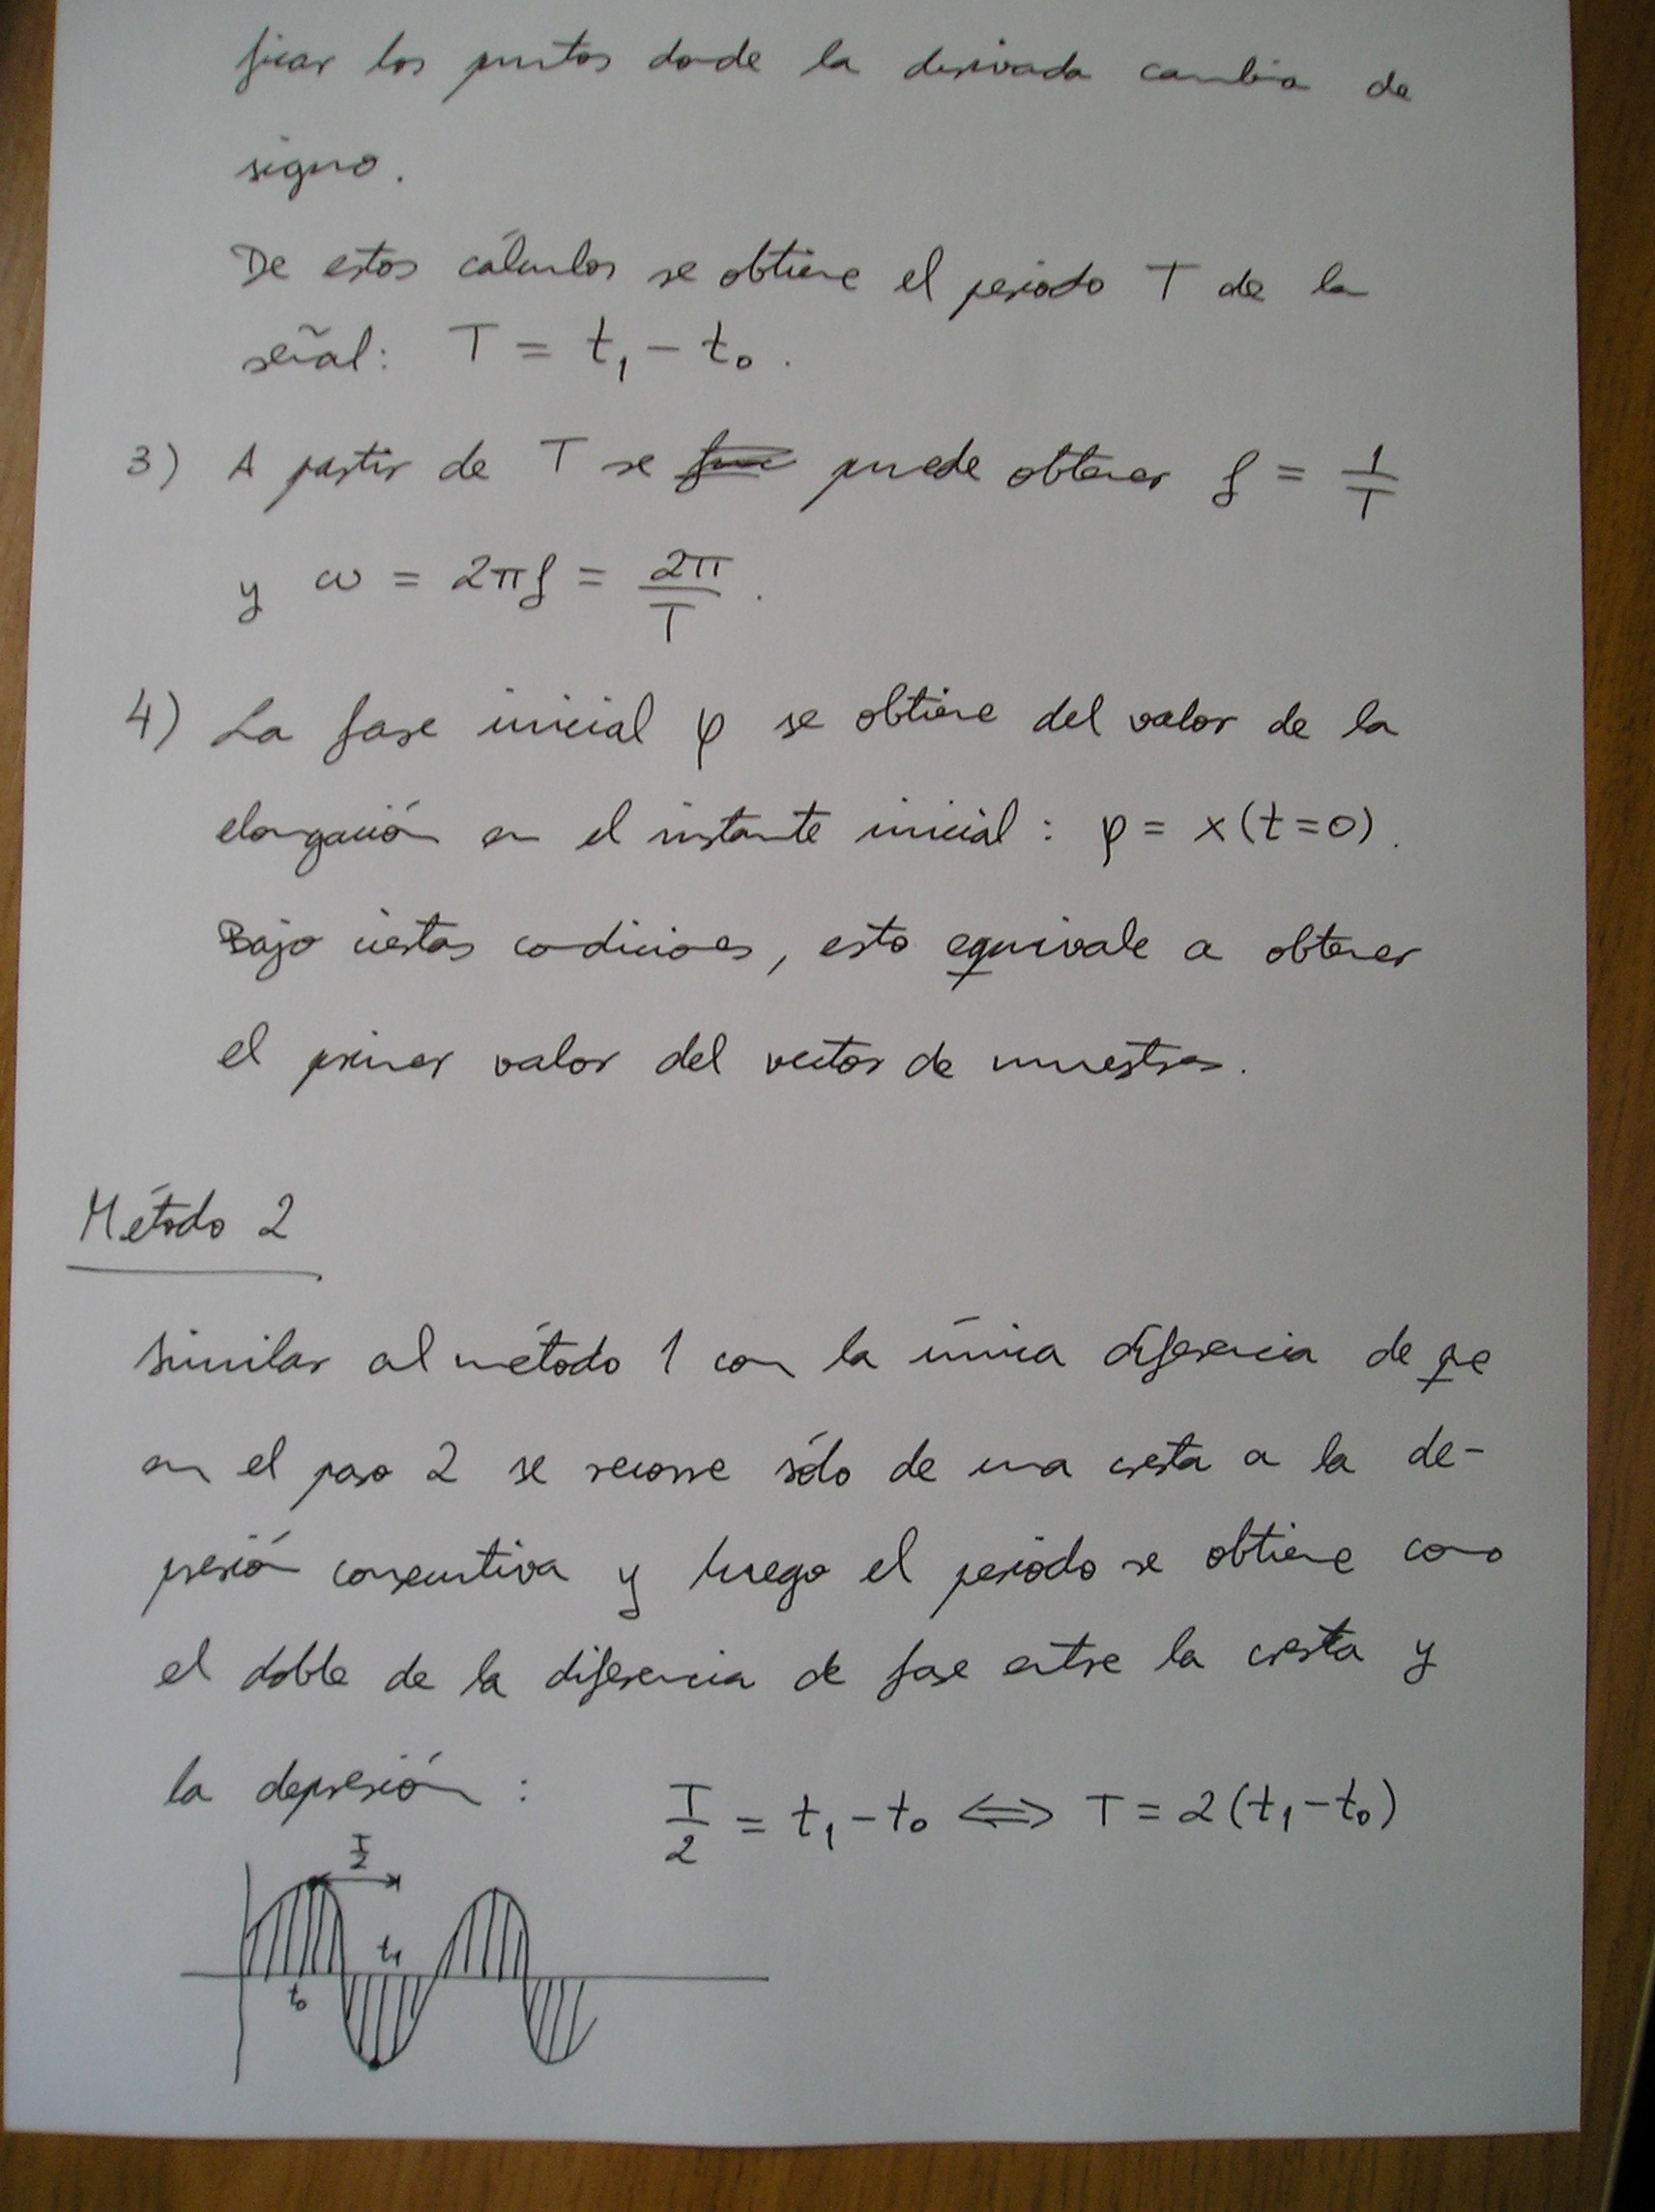 ficar los puntos donde la derivada cambia de
signo.
De estos cálculos se obtiene el periodo T de la
señal: T = t₁ - t₀.
3) A partir de T se puede obtener f = 1/T
y ω = 2πf = 2π/T.
4) La fase inicial φ se obtiene del valor de la
elongación en el instante inicial: φ = x(t=0).
Bajo ciertas condiciones, esto equivale a obtener
el primer valor del vector de muestras.
Método 2
Similar al método 1 con la única diferencia de qe
en el paso 2 se recorre sólo de una cresta a la de-
presión consecutiva y luego el periodo se obtiene como
el doble de la diferencia de fase entre la cresta y
la depresión: T/2 = t₁ - t₀ ⟺ T = 2(t₁ - t₀)
T/2
t₁
t₀